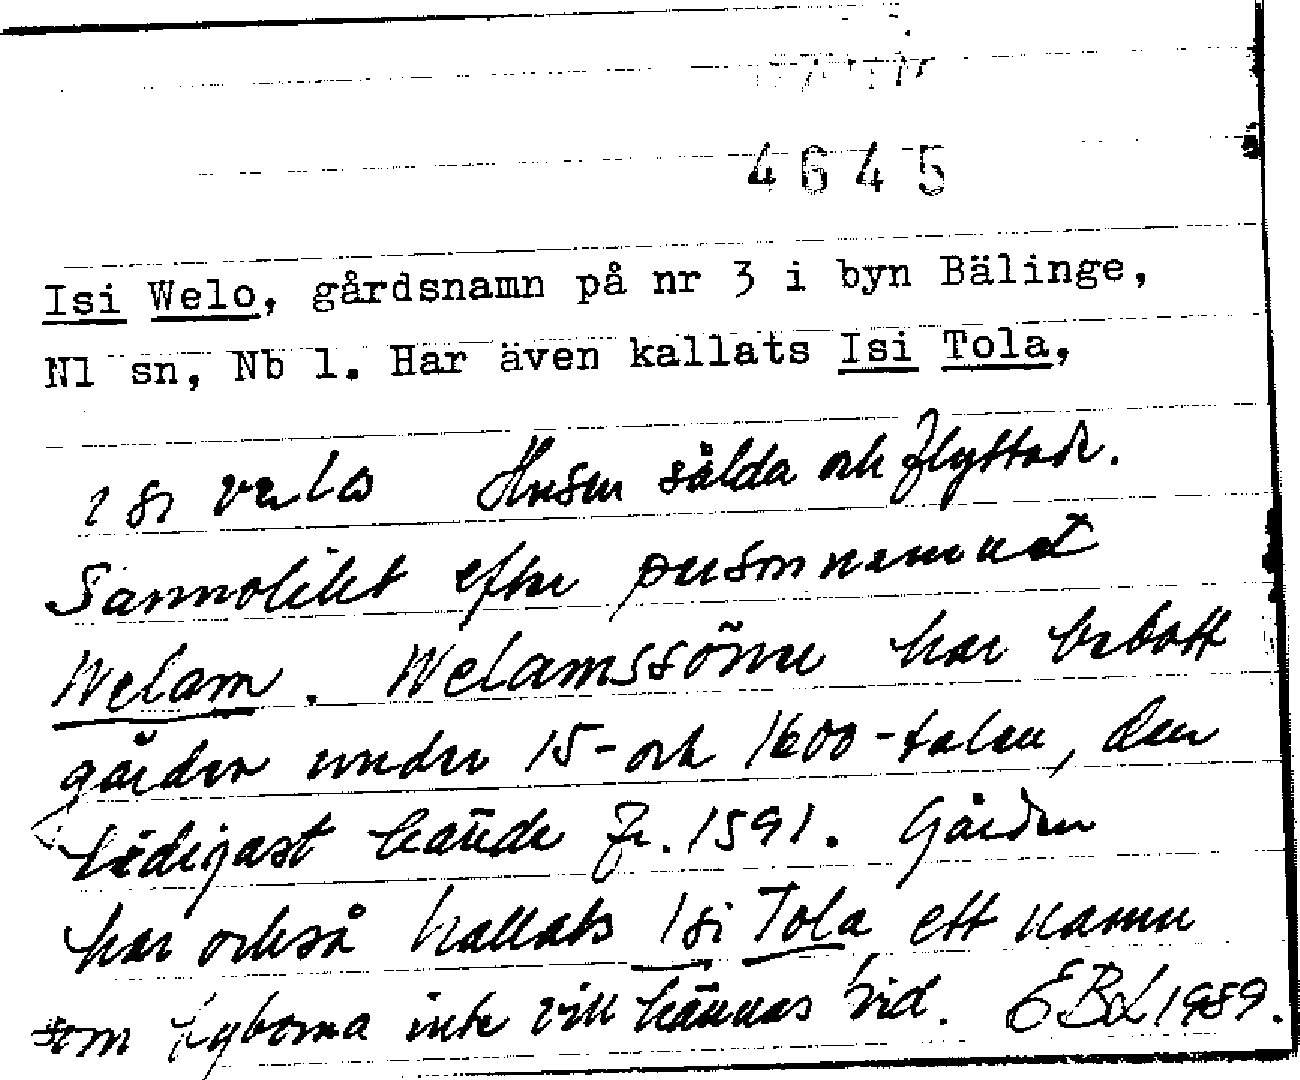 4645
Isi Welo, gårdsnamn på nr 3 i byn Bälinge,
Nl sn, Nb l. Har även kallats Isi Tola,
isi velo Husen sålda och flyttade.
Sannolikt efter personnamnet
Welam. Welamssöner har bebott
gården under 15- och 1600-talen, den
tidigast kände fr. 1591. Gården
har också kallats Isi Tola ett namn
som byborna inte vill kännas vid. EBL 1989.